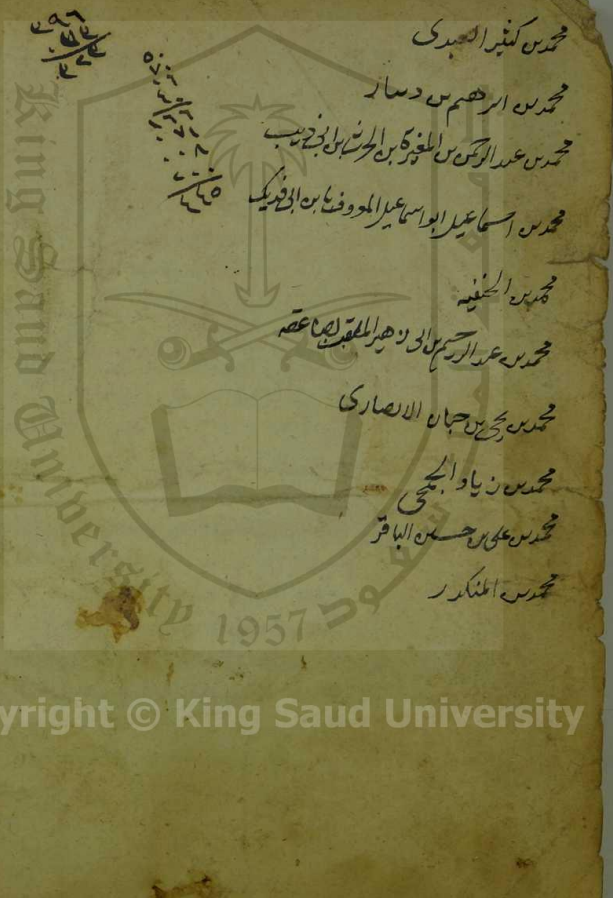 محمد بن كثير العبدي
محمد بن ابرهيم بن دينار
محمد بن عبد الرحمن بن المغيرة بن الحرث بن ابي ذيب
محمد بن اسماعيل ابو اسماعيل المعروف بابن ابي فديك
محمد بن الحنفيه
محمد بن عبد الرحيم بن ابي زهير الملقب بصاعقه
محمد بن يحيى بن حبان الانصاري
محمد بن زياد الجمحي
محمد بن علي بن حسين الباقر
محمد بن المنكدر
King Saud University
1957
Copyright © King Saud University